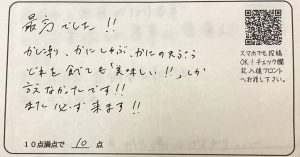 最高でした!!
かに刺、かにしゃぶ、かに天ぷら
どれを食べても「美味しい!!」しか
言えなかったです!!
また必ず来ます!!
スマホでも投稿
OK!チェック欄
記入後フロント
へお渡し下さい。
10点満点で 10 点